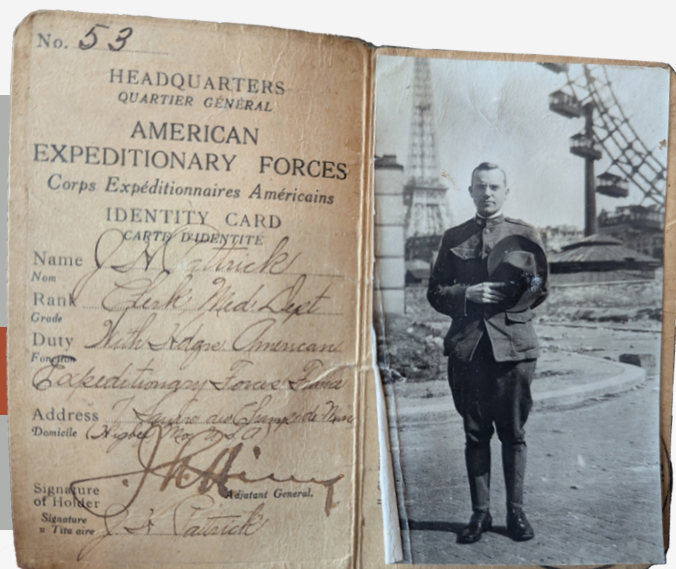 No. 53
HEADQUARTERS
QUARTIER GÉNÉRAL
AMERICAN
EXPEDITIONARY FORCES
Corps Expéditionnaires Américains
IDENTITY CARD
CARTE D'IDENTITÉ
Name J H Patrick
Nom
Rank Clerk Med. Dept
Grade
Duty With Hdqrs American
Fonction
Expeditionary Forces France
Address 7
Domicile
Adjutant General.
Signature
of Holder
Signature J H Patrick
u Titu aire